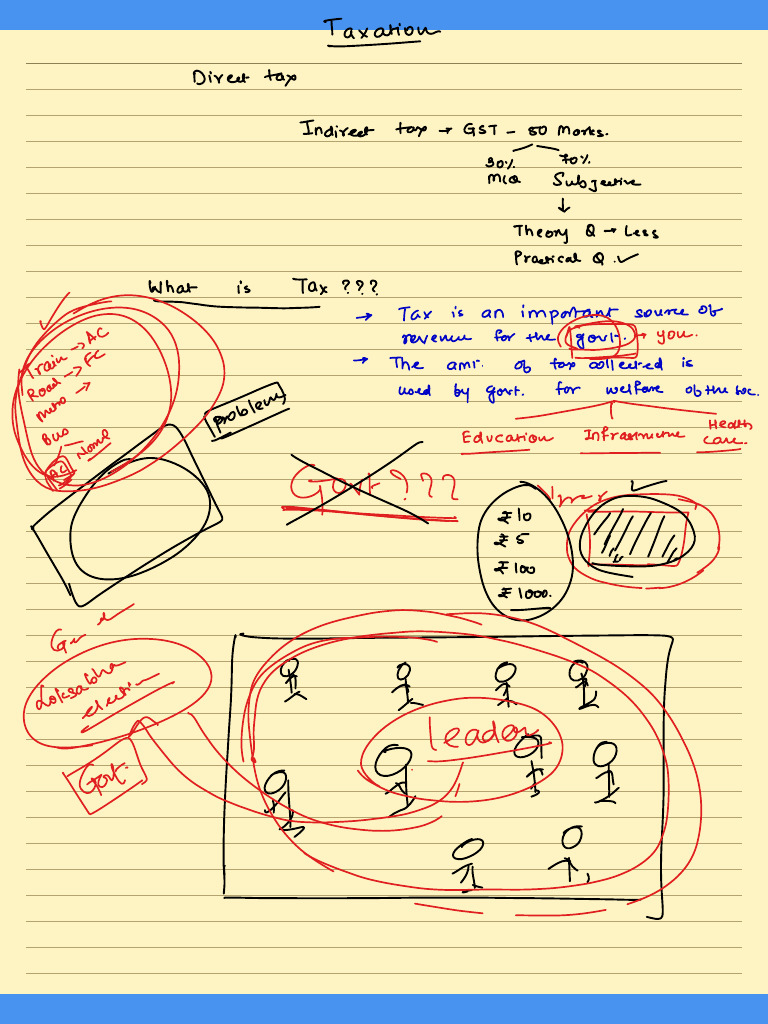 Taxation
Direct tax
Indirect tax → GST - 50 Marks.
30% 70%
MCQ Subjective
↓
Theory Q → Less
Practical Q. ✓
What is Tax ???
→ Tax is an important source of
revenue for the govt. → you.
→ The amt. of tax collected is
used by govt. for welfare of the soc.
Education Infrastructure Health
care.
Train → AC
Road → FC
Metro →
Bus
AC None
Problems
Govt ???
₹10
₹5
₹100
₹1000.
Loksabha
election
Govt.
leader